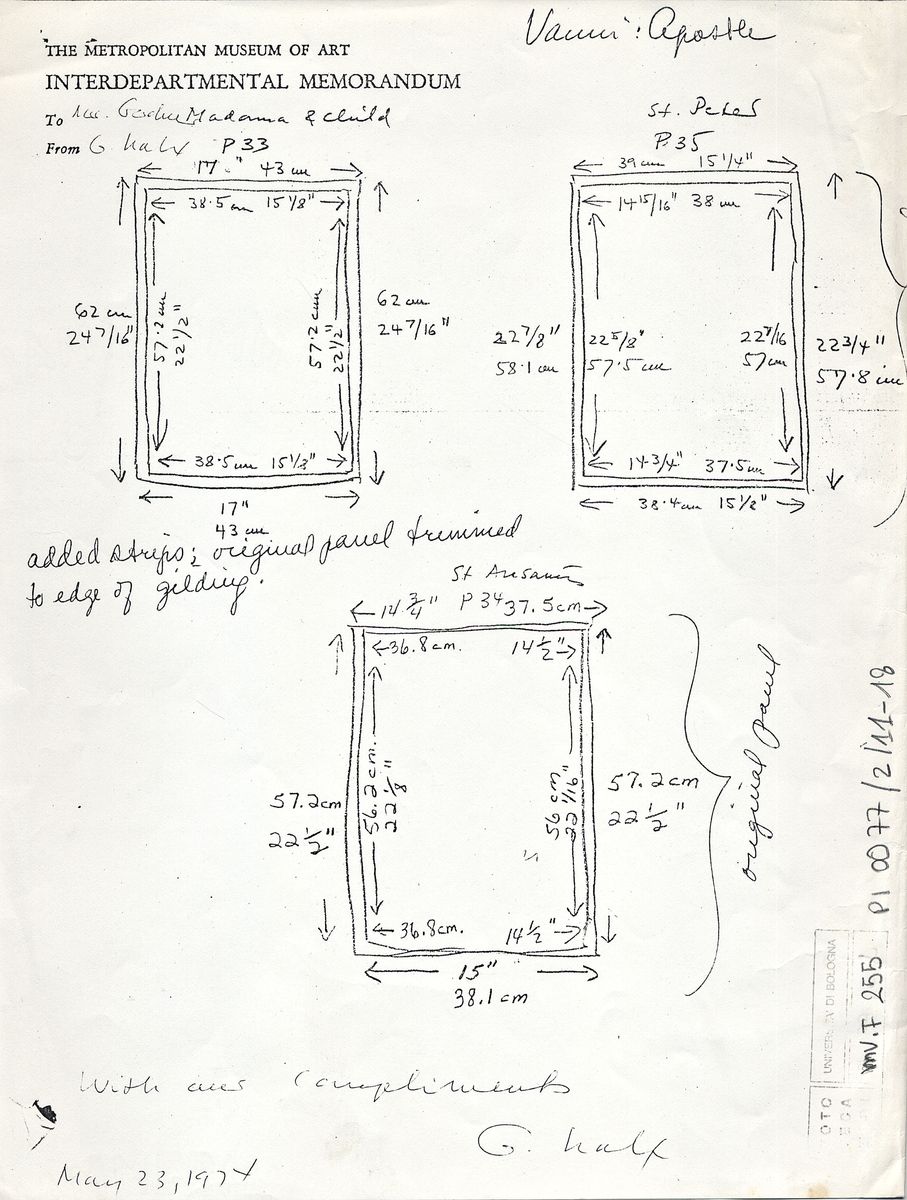 Vanni: Apostle
THE METROPOLITAN MUSEUM OF ART
INTERDEPARTMENTAL MEMORANDUM
To Madonna & child
From G. P33
17" 43 cm
38.5cm 15 1/8"
62 cm
24 7/16"
57.2 cm
22 1/2"
57.2 cm
22 1/2"
62 cm
24 7/16"
38.5cm 15 1/8"
17"
43 cm
added strips; original panel trimmed
to edge of gilding.
St. Peter
P.35
39 cm 15 1/4"
14 15/16" 38 cm
22 7/8"
58.1 cm
22 5/8"
57.5 cm
22 7/16
57 cm
22 3/4"
57.8 cm
14 3/4" 37.5cm
38.4cm 15 1/8"
St Ansanus
14 3/4" P34 37.5cm
36.8cm. 14 1/2"
57.2cm
22 1/2"
56.2cm.
22 1/8"
56 cm
22 1/16"
57.2cm
22 1/2"
36.8cm. 14 1/2"
15"
38.1 cm
original panel
PI 0077/2/11-18
UNIVERSITÀ DI BOLOGNA
INV.F 255
OTO
ECA
With our Compliments
G.
May 23, 1974